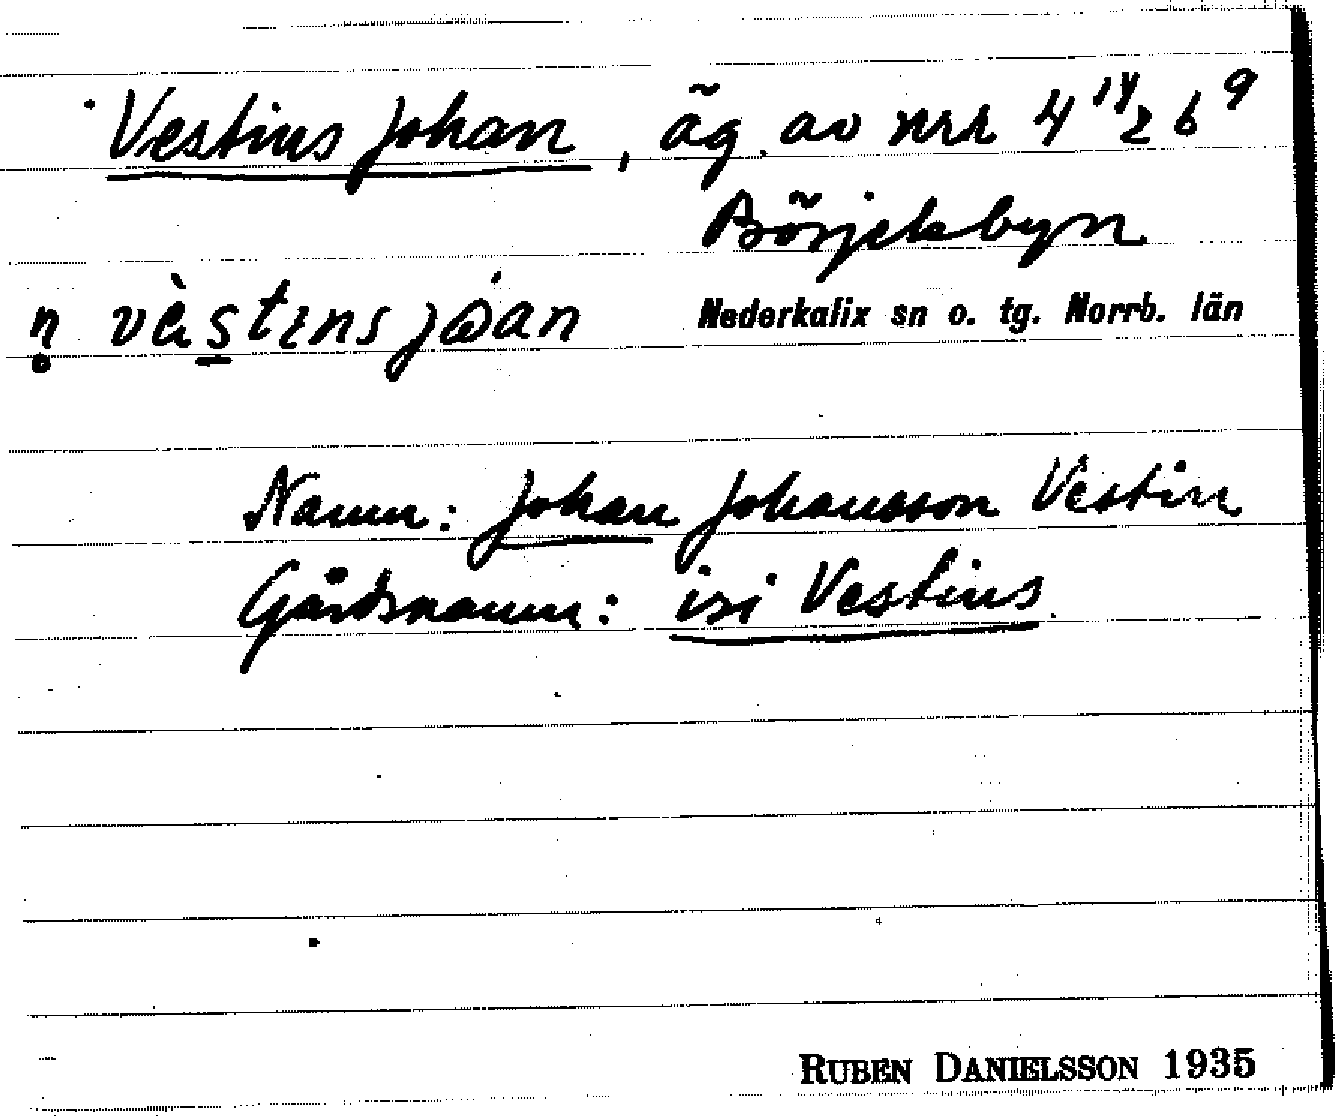 Vestins Johan, äg. av nrr 4¹⁴ 2 6⁹
Börjelsbyn
Nederkalix sn o. tg. Norrb. län
Namn: Johan Johansson Vestin
Gårdsnamn: isi Vestins
RUBEN DANIELSSON 1935